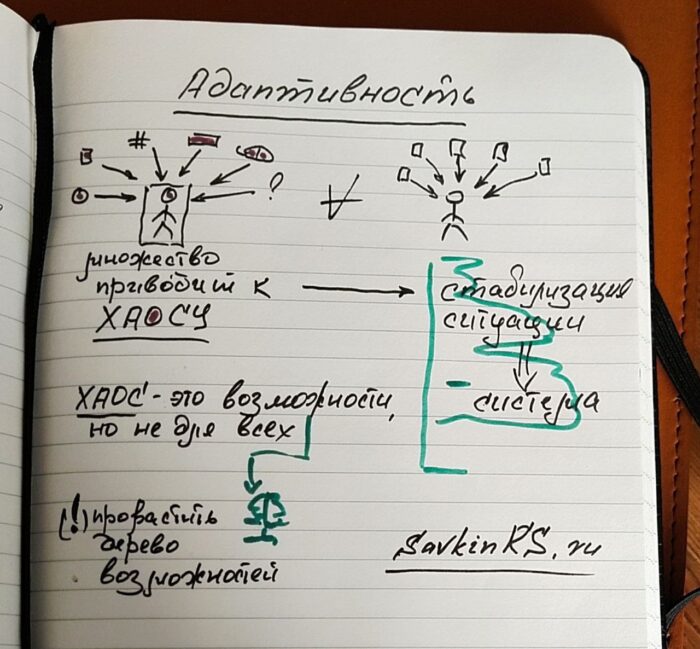 Адаптивность
#
?
множество
приводит к
ХАОСУ
стабилизация
ситуации
система
ХАОС - это возможности,
но не для всех
(!) прорастить
дерево
возможностей
SavkinRS.ru